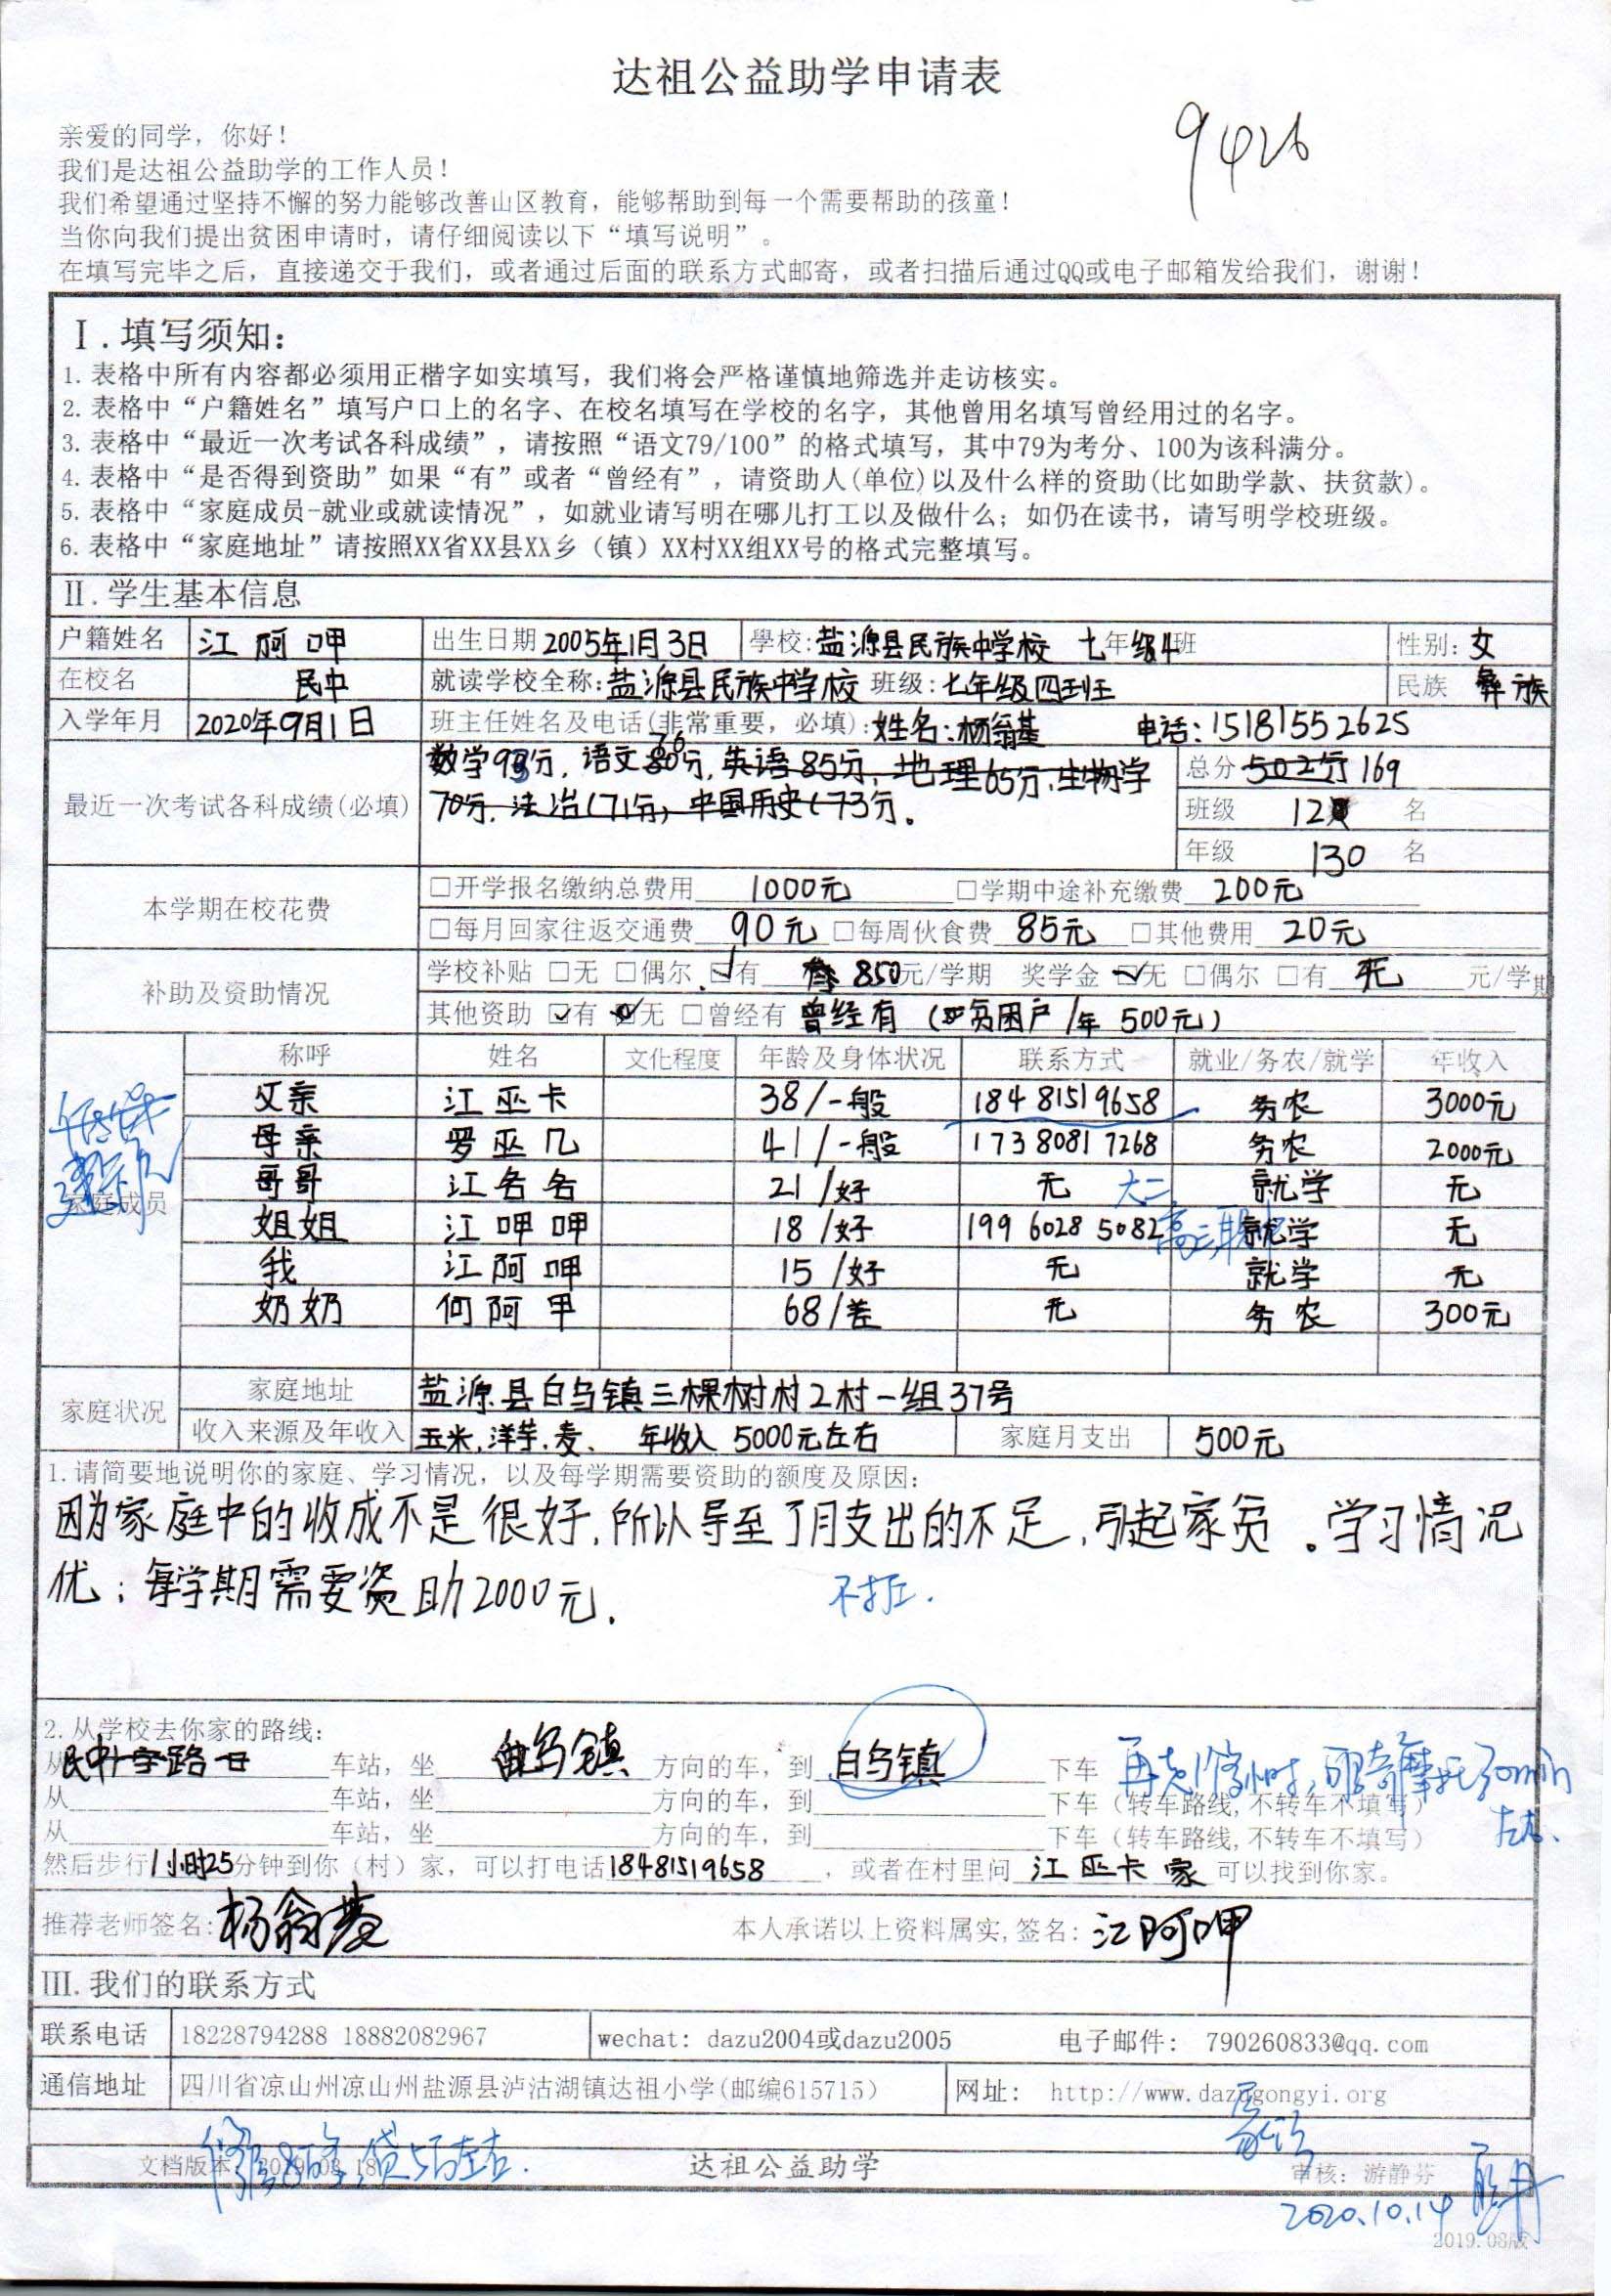 达祖公益助学申请表
9426
亲爱的同学，你好！
我们是达祖公益助学的工作人员！
我们希望通过坚持不懈的努力能够改善山区教育，能够帮助到每一个需要帮助的孩童！
当你向我们提出贫困申请时，请仔细阅读以下“填写说明”。
在填写完毕之后，直接递交于我们，或者通过后面的联系方式邮寄，或者扫描后通过QQ或电子邮箱发给我们，谢谢！
Ⅰ.填写须知：
1.表格中所有内容都必须用正楷字如实填写，我们将会严格谨慎地筛选并走访核实。
2.表格中“户籍姓名”填写户口上的名字、在校名填写在学校的名字，其他曾用名填写曾经用过的名字。
3.表格中“最近一次考试各科成绩”，请按照“语文79/100”的格式填写，其中79为考分、100为该科满分。
4.表格中“是否得到资助”如果“有”或者“曾经有”，请资助人(单位)以及什么样的资助(比如助学款、扶贫款)。
5.表格中“家庭成员-就业或就读情况”，如就业请写明在哪儿打工以及做什么；如仍在读书，请写明学校班级。
6.表格中“家庭地址”请按照XX省XX县XX乡（镇）XX村XX组XX号的格式完整填写。
Ⅱ.学生基本信息
户籍姓名 江阿呷 出生日期 2005年1月3日 學校:盐源县民族中学校 七年级4班 性别: 女
在校名 民中 就读学校全称:盐源县民族中学校 班级:七年级四班 民族 彝族
入学年月 2020年9月1日 班主任姓名及电话(非常重要，必填):姓名:杨翁基 电话:15181552625
最近一次考试各科成绩(必填) 数学93分,语文76分,英语85分,地理65分,生物学
70分,法治(71分),中国历史(73分. 
总分 502分 169
班级 12 名
年级 130 名
本学期在校花费 □开学报名缴纳总费用 1000元 □学期中途补充缴费 200元
□每月回家往返交通费 90元 □每周伙食费 85元 □其他费用 20元
补助及资助情况 学校补贴 □无 □偶尔 ☑有 850元/学期 奖学金 ☑无 □偶尔 □有 无 元/学期
其他资助 ☑有 ☑无 □曾经有 曾经有 (贫困户/年 500元)
家庭成员 称呼 姓名 文化程度 年龄及身体状况 联系方式 就业/务农/就学 年收入
父亲 江巫卡 38/一般 18481519658 务农 3000元
母亲 罗巫几 41/一般 17380817268 务农 2000元
哥哥 江名名 21/好 无 大二 就学 无
姐姐 江呷呷 18/好 19960285082 高三 就学 无
我 江阿呷 15/好 无 就学 无
奶奶 何阿甲 68/差 无 务农 300元
家庭状况 家庭地址 盐源县白乌镇三棵树村2村一组37号
收入来源及年收入 玉米,洋芋,麦、 年收入 5000元左右 家庭月支出 500元
1.请简要地说明你的家庭、学习情况，以及每学期需要资助的额度及原因:
因为家庭中的收成不是很好,所以导至了月支出的不足,引起家贫。学习情况
优;每学期需要资助2000元.
不打工.
2.从学校去你家的路线:
从民中十字路口 车站，坐 白乌镇 方向的车，到 白乌镇 下车 再走1个多小时,骑摩托30min
左右.
从 车站，坐 方向的车，到 下车（转车路线,不转车不填写）
从 车站，坐 方向的车，到 下车（转车路线,不转车不填写）
然后步行1小时25分钟到你（村）家，可以打电话18481519658，或者在村里问 江巫卡家 可以找到你家。
推荐老师签名: 本人承诺以上资料属实,签名: 江阿呷
Ⅲ.我们的联系方式
联系电话 18228794288 18882082967 wechat: dazu2004或dazu2005 电子邮件: 790260833@qq.com
通信地址 四川省凉山州凉山州盐源县泸沽湖镇达祖小学(邮编615715) 网址: http://www.dazugongyi.org
文档版本 达祖公益助学 审核: 游静芬
2020.10.14
2019.08版